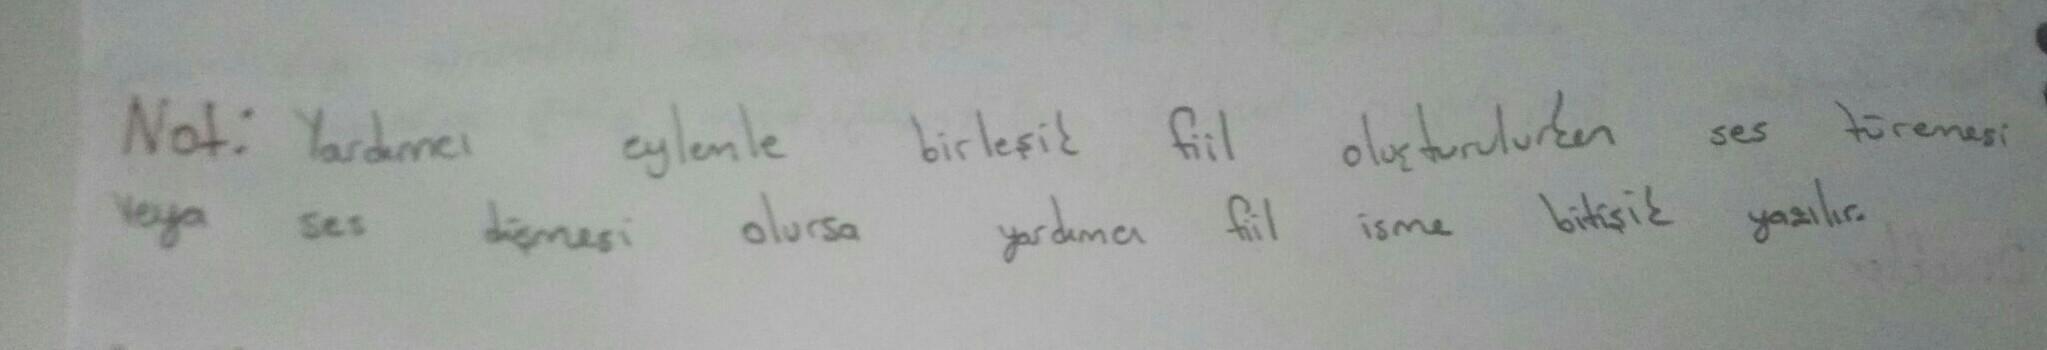 Not: Yardımcı eylemle birleşik fiil oluşturulurken ses türemesi
veya ses düşmesi olursa yardımcı fiil isme bitişik yazılır.